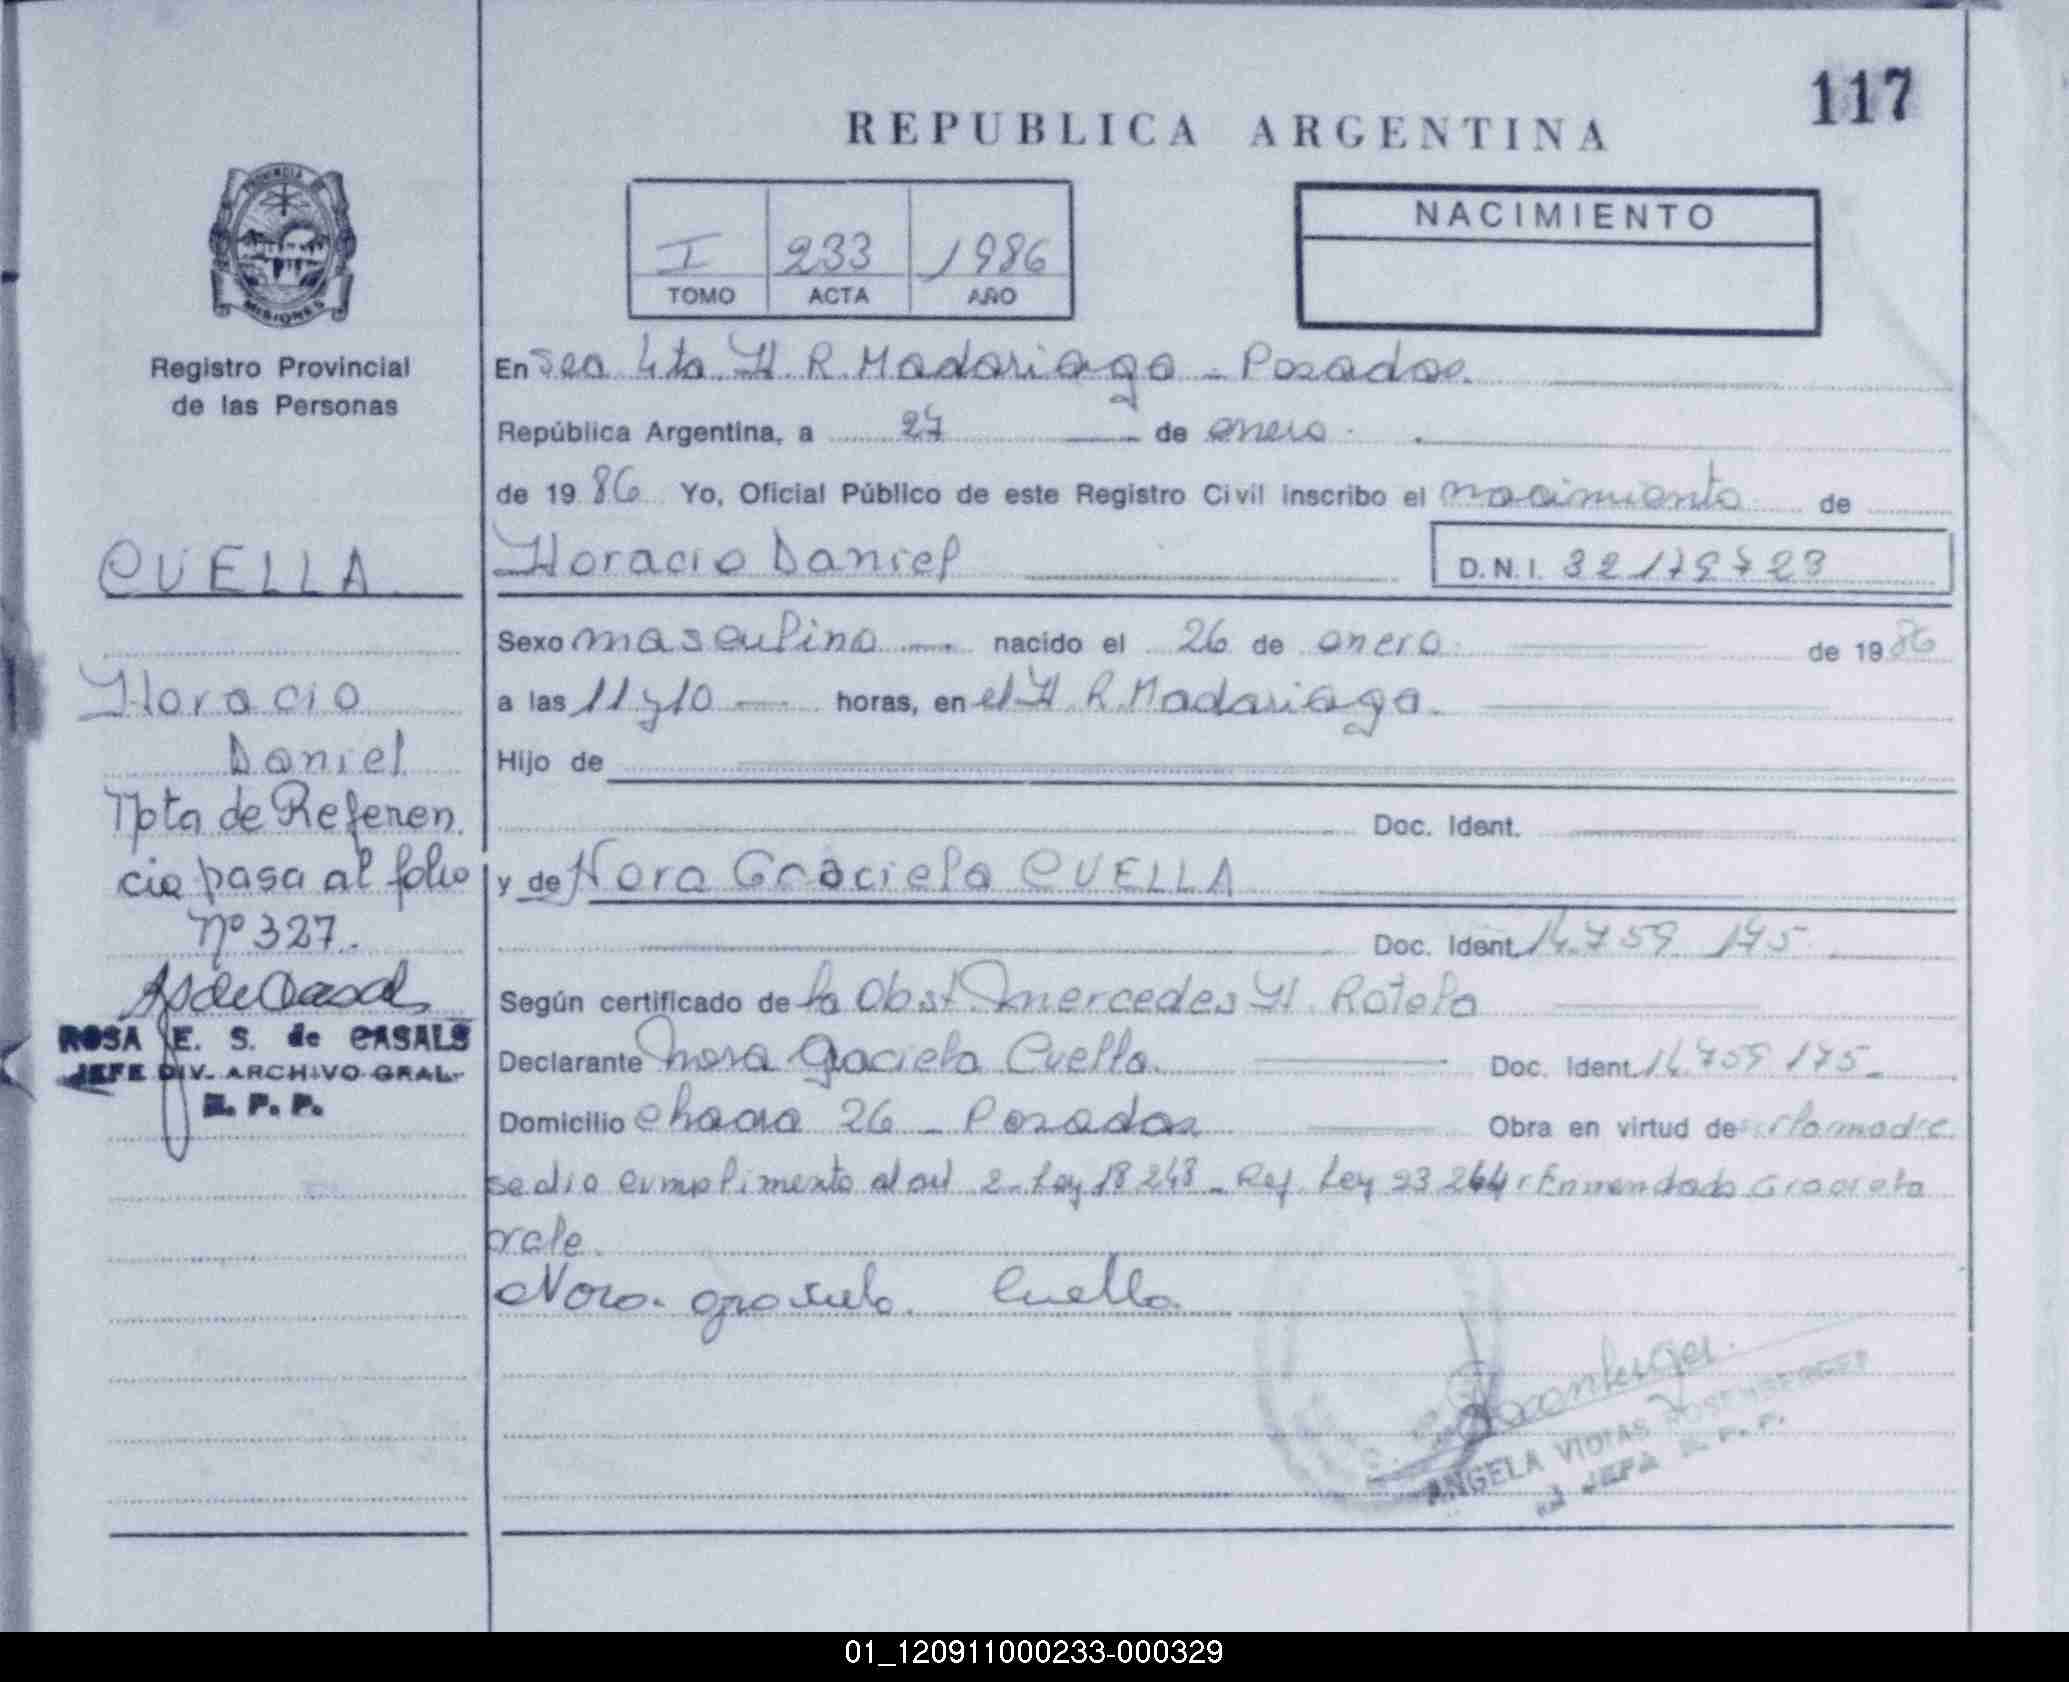 117
REPUBLICA ARGENTINA
PROVINCIA DE
MISIONES
I 233 1986
TOMO ACTA AÑO
NACIMIENTO
Registro Provincial
de las Personas
En Sec 4ta H. R. Madariaga - Posadas.
República Argentina, a 27 de enero.
de 1986 Yo, Oficial Público de este Registro Civil inscribo el nacimiento de
CUELLA
Horacio Daniel D.N.I. 32179723
Sexo masculino nacido el 26 de enero de 1986
Horacio
a las 11 y 10 horas, en el H. R. Madariaga.
Daniel
Hijo de
Nota de Referen
Doc. Ident.
cia pasa al folio
y de Nora Graciela CUELLA
Nº 327.
Doc. Ident. 14.759.175
Según certificado de la Obst. Mercedes H. Rotela
ROSA E. S. de CASALS
JEFE DIV. ARCHIVO GRAL.
R. P. P.
Declarante Nora Graciela Cuella. Doc. Ident. 14.759.175
Domicilio Chacra 26 - Posadas Obra en virtud de la madre
se dio cumplimento al art 2 - Ley 18.248 - Ref. Ley 23.264 Enmendado Graciela
vale.
Nora graciela Cuella
ANGELA VIDIAS ROSENBERGER
JEFA R. P. P.
01_120911000233-000329